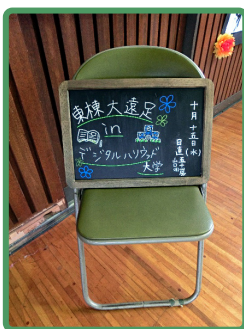 東棟大遠足
in
デジタルハリウッド
大学
十月十五日(水)